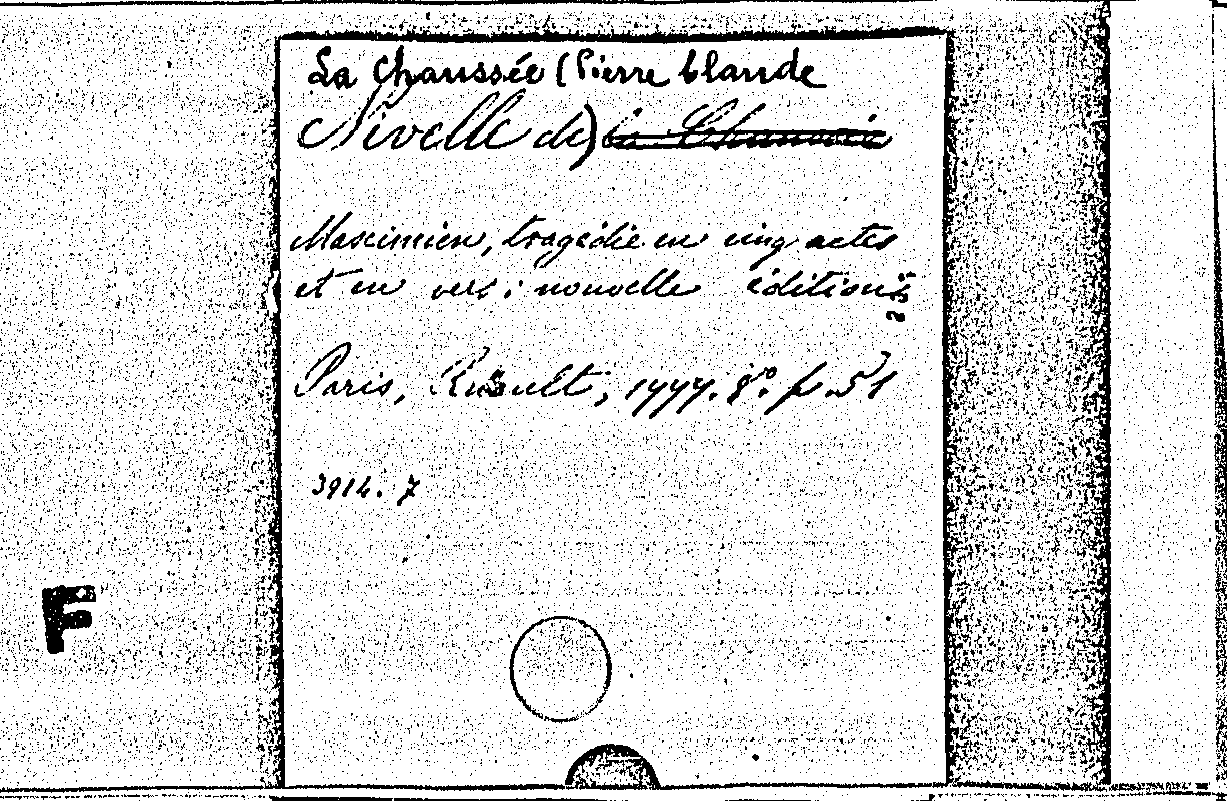 La Chaussée (Pierre Claude
Nivelle de) la Chaussée
Maximien, tragédie en cinq actes
et en vers; nouvelle édition
Paris, Ruault, 1777. 8°. p. 51
3914. 7
F